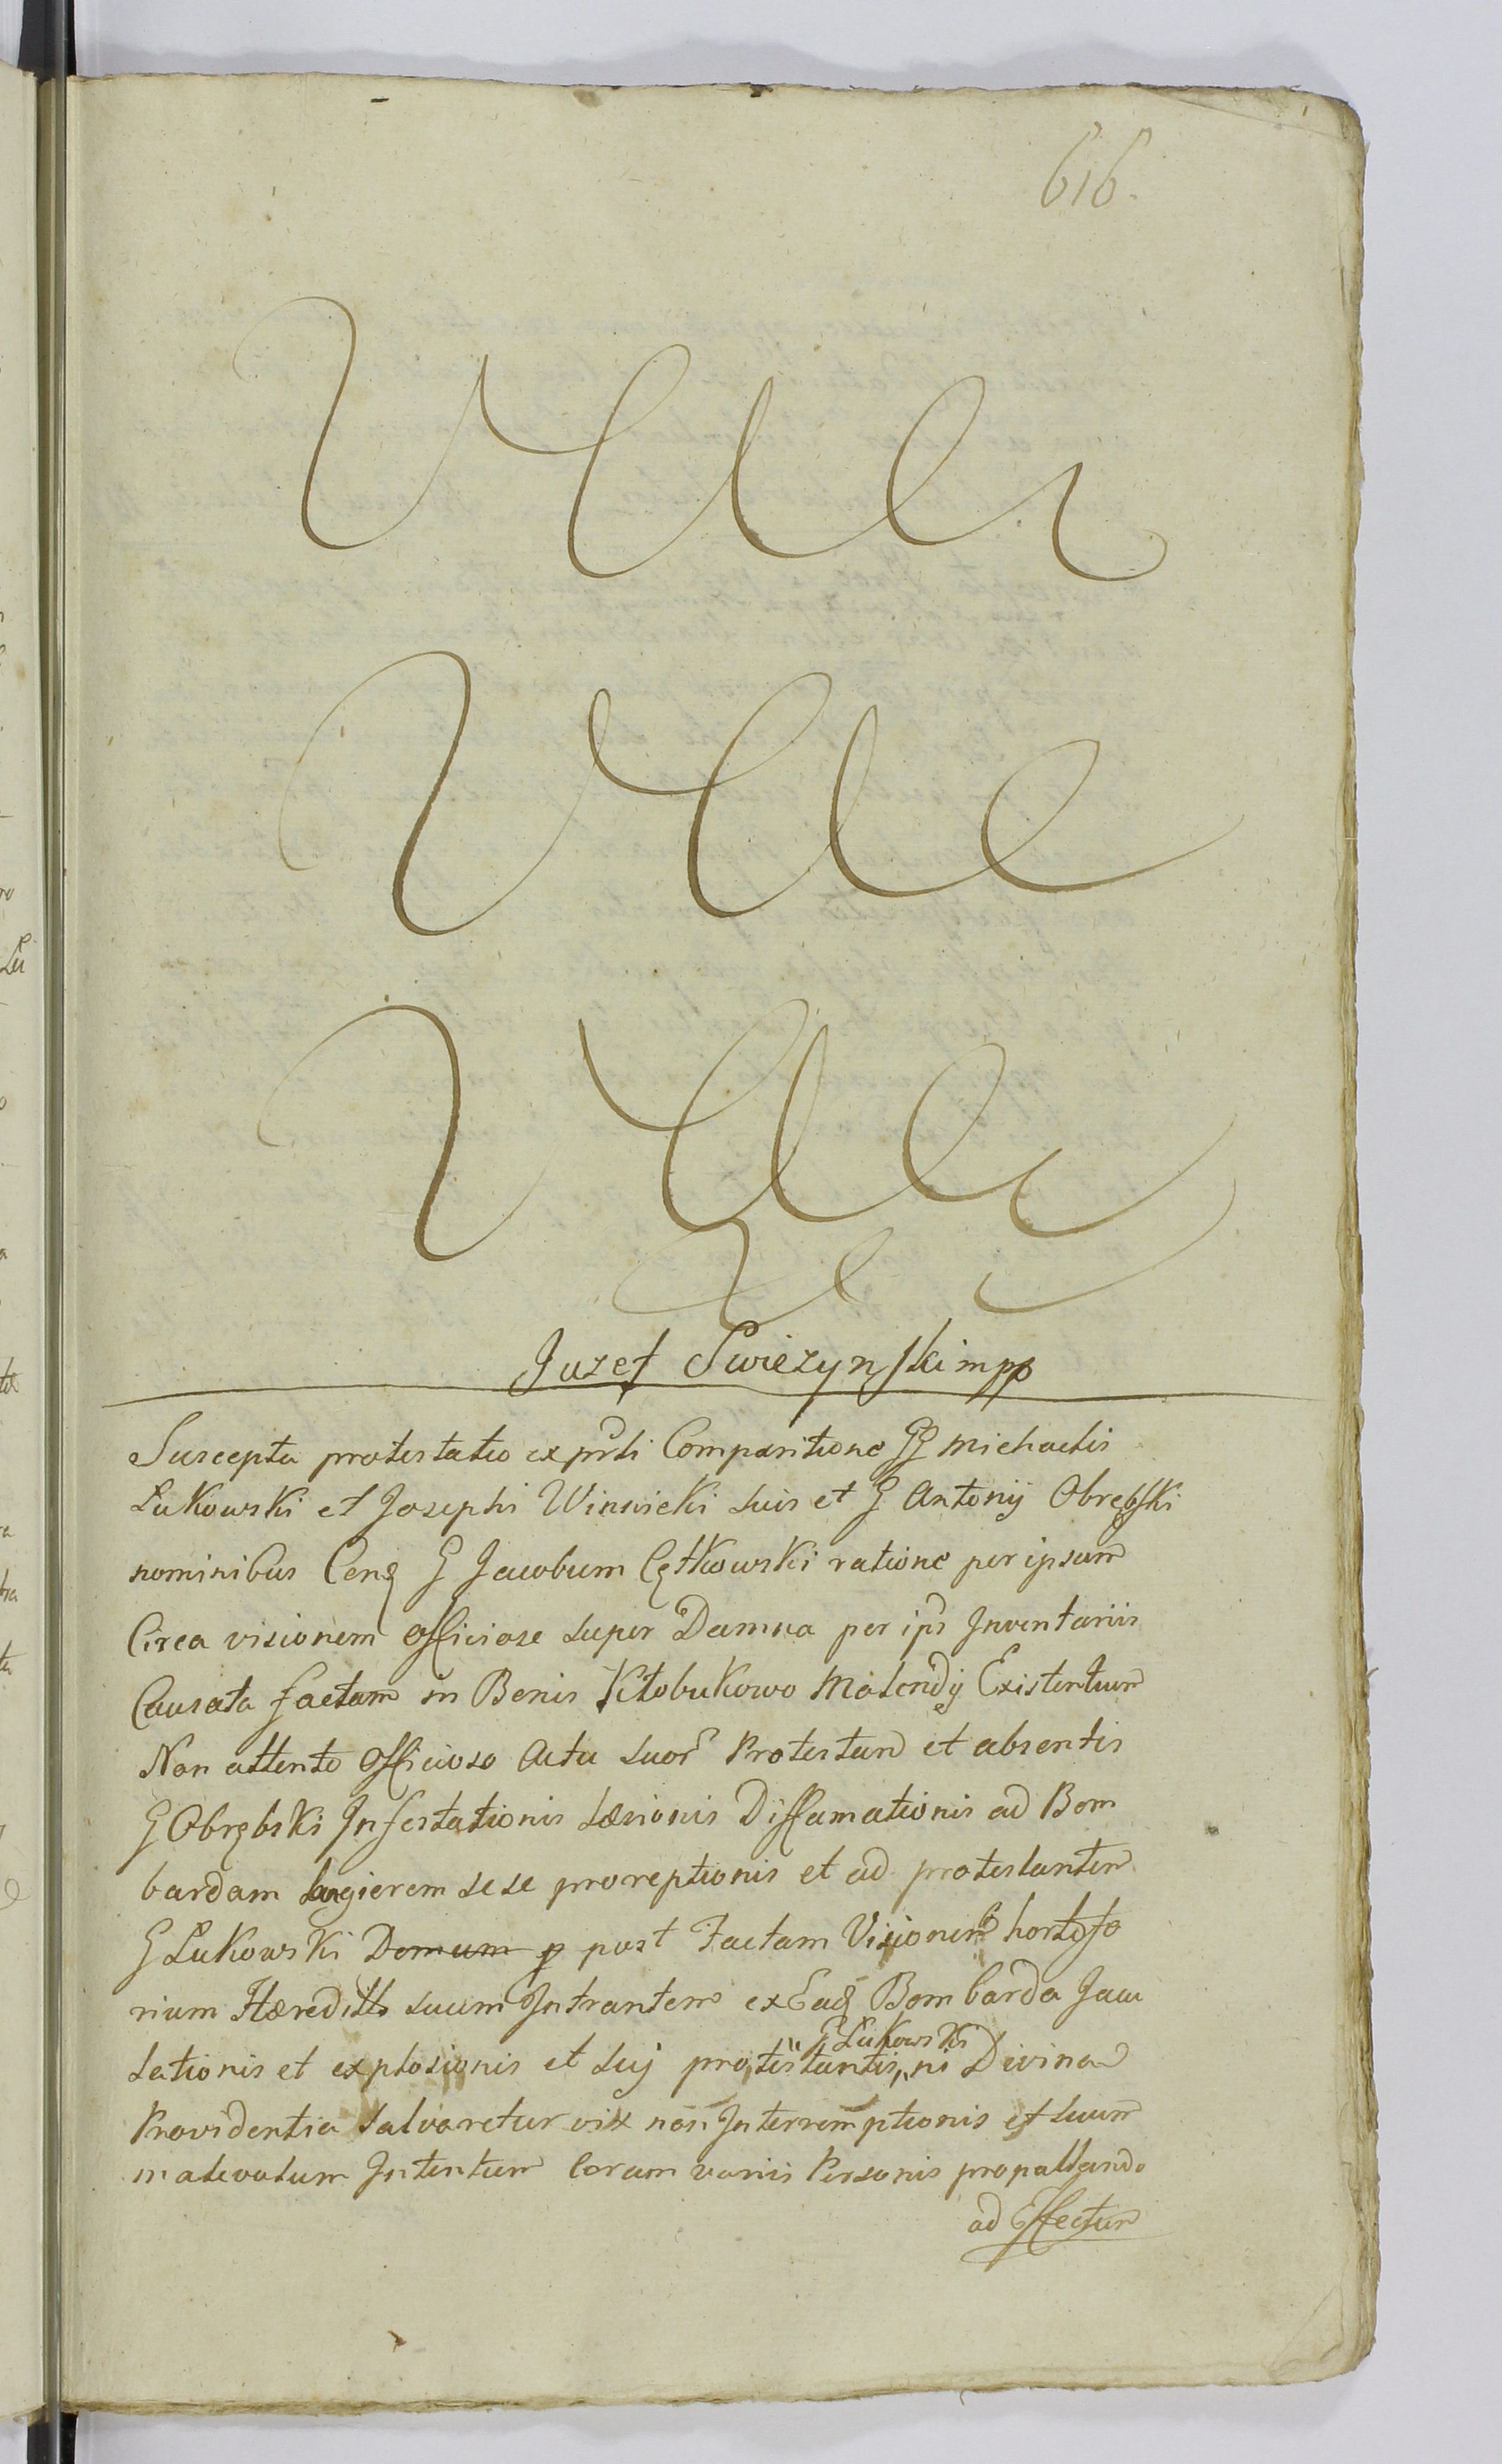 616.
Juzef Swiezynski mpp
Suscepta protestatio ex prti Comparitione GG Michaelis
Lukowski et Josephi Winnicki suis et G Antonij Obrębski
nominibus Cenq G Jacobum Cętkowski ratione per ipsum
Circa visionem officiose super Damna per ips Inventariis
Causata factam in Bonis Kłobukowo Existentium
Non attento Officioso Actu suor Protestan et absentis
G Obrębski Infestationis Læsionis Diffamationis ad Bom
bardam sese proreptionis et ad protestantem
G Lukowski Domum p post Factam Visionem
rium Hæredit suum Intrantem ex Eadq Bombarda Jacu
lationis et explosionis et sui protestantis G Lukowski ni Divina
Providentia salvaretur vix non Interremptionis et suum
malevolum Intentum Coram variis Personis propallando
ad Effectum